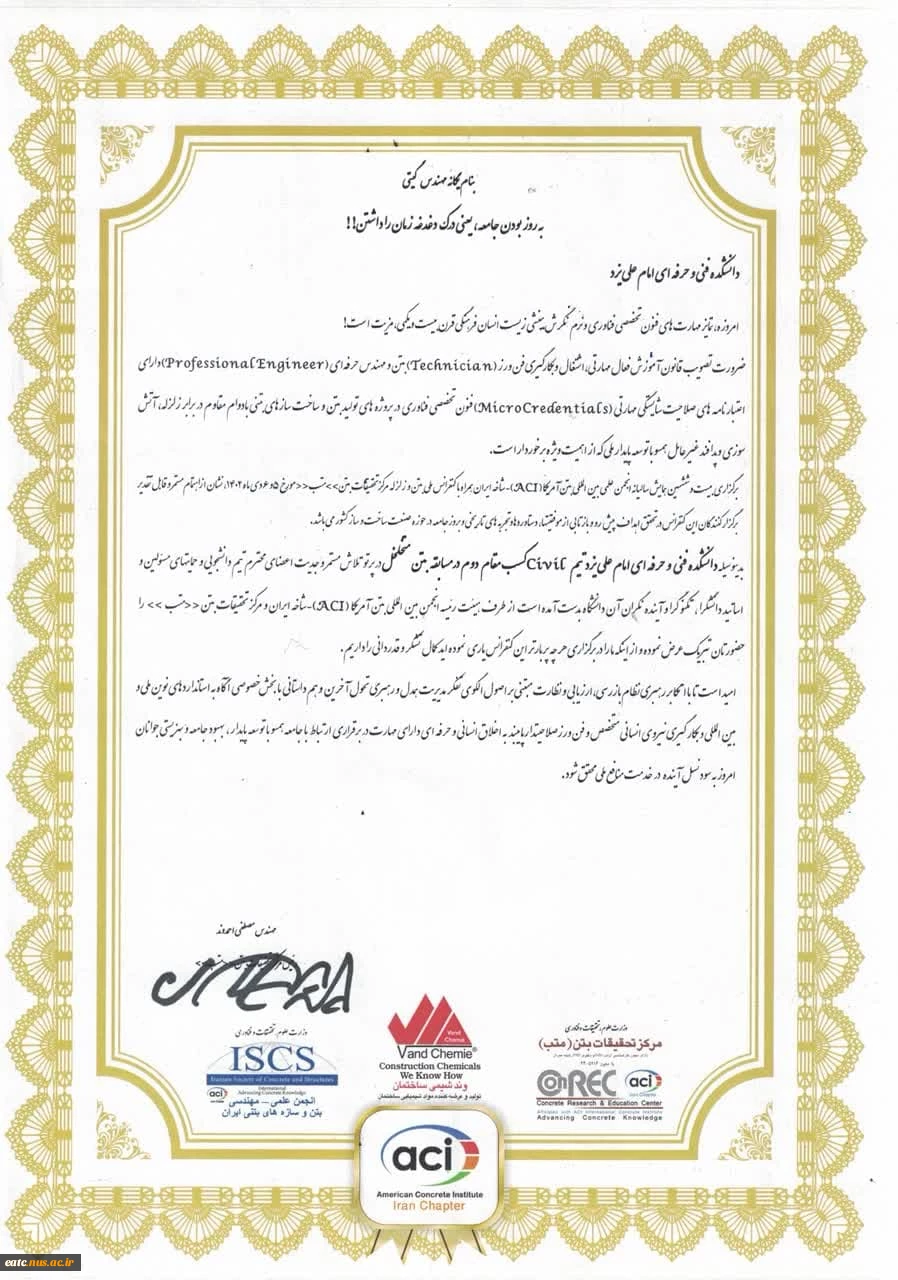 بنام یگانه مهندس گیتی
به روز بودن جامعه، یعنی درک دغدغه زمان را داشتن!!
دانشکده فنی و حرفه ای امام علی یزد
امروزه، تمایز مهارت های فنون تخصصی فناوری و نرم نگرش بینشی زیست انسان فرهنگی قرن بیست و یکمی، مزیت است!
ضرورت تصویب قانون آموزش فعال مهارتی، اشتغال و بکارگیری فن ورز (Technician) بتن و مهندس حرفه ای (Professional Engineer) دارای
اعتبارنامه های صلاحیت شایستگی مهارتی (MicroCredentials) فنون تخصصی فناوری در پروژه های تولید بتن و ساخت سازهای بتنی بادوام مقاوم در برابر زلزله، آتش
سوزی و پدافند غیرعامل همسو با توسعه پایدار ملی که از اهمیت ویژه برخوردار است.
برگزاری بیست و ششمین همایش سالیانه انجمن علمی بین المللی بتن آمریکا (ACI)-شاخه ایران همراه با کنفرانس ملی بتن و زلزله مرکز تحقیقات بتن >>متب<< مورخ ۵ و ۶ دی ماه ۱۴۰۲، نشان از اهتمام مستمر و قابل تقدیر
برگزار کنندگان این کنفرانس در تحقق اهداف پیش رو و بازتابی از موفقیتها، دستاوردها و تجربه های تاریخی و بروز جامعه در حوزه صنعت ساخت و ساز کشور می باشد.
بدینوسیله دانشکده فنی و حرفه ای امام علی یزد تیم Civil کسب مقام دوم در مسابقه بتن متخلخل در پرتو تلاش مستمر و جدیت اعضای محترم تیم دانشجویی و حمایتهای مسئولین و
اساتید دانشگرا، تکنوکرا و آینده نگران آن دانشگاه بدست آمده است از طرف هیئت رئیسه انجمن بین المللی بتن آمریکا (ACI)-شاخه ایران و مرکز تحقیقات بتن <<متب>> را
حضورتان تبریک عرض نموده و از اینکه ما را در برگزاری هرچه پربارتر این کنفرانس یاری نموده اید کمال تشکر و قدردانی را داریم.
امید است تا با اتکا بر رهبری نظام بازرسی، ارزیابی و نظارت مبتنی بر اصول الگوی تفکر مدیریت همدل و رهبری تحول آخرین و هم داستانی با بخش خصوصی آگاه به استانداردهای نوین ملی و
بین المللی و بکارگیری نیروی انسانی متخصص و فن ورز صلاحیتدار پایبند به اخلاق انسانی و حرفه ای دارای مهارت در برقراری ارتباط با جامعه همسو با توسعه پایدار، بهبود جامعه و بهزیستی جوانان
امروز به سود نسل آینده در خدمت منافع ملی محقق شود.
مهندس مصطفی احمدوند
وزارت علوم، تحقیقات و فناوری
ISCS
Iranian Society of Concrete and Structures
aci
International
Advancing Concrete Knowledge
انجمن علمی - مهندسی
بتن و سازه های بتنی ایران
Vand Chemie
Vand Chemie®
Construction Chemicals
We Know How
وند شیمی ساختمان
تولید و عرضه کننده مواد شیمیایی ساختمان
وزارت علوم، تحقیقات و فناوری
مرکز تحقیقات بتن (متب)
ConREC
aci
Iran Chapter
Concrete Research & Education Center
Affiliated with ACI International Concrete Institute
Advancing Concrete Knowledge
aci
American Concrete Institute
Iran Chapter
eatc.nus.ac.ir